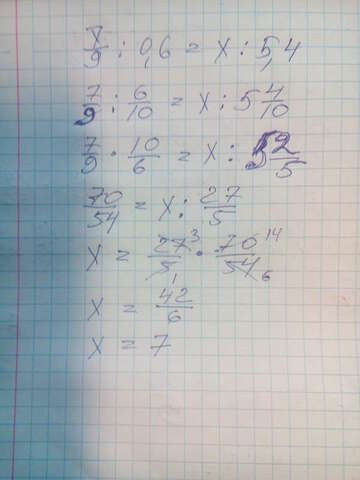 7/9 : 0,6 = x : 5,4
7/9 : 6/10 = x : 5 4/10
7/9 · 10/6 = x : 5 2/5
70/54 = x : 27/5
x = 27 3/5 1 · 70 14/54 6
x = 42/6
x = 7